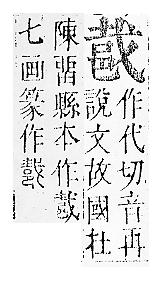 作代切音再
說文故國杜
陳畱縣本作
七画篆作